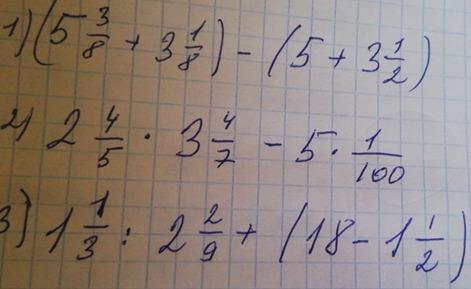 1) (5 3/8 + 3 1/8) - (5 + 3 1/2)
2) 2 4/5 · 3 4/7 - 5 · 1/100
3) 1 1/3 : 2 2/9 + (18 - 1 1/2)